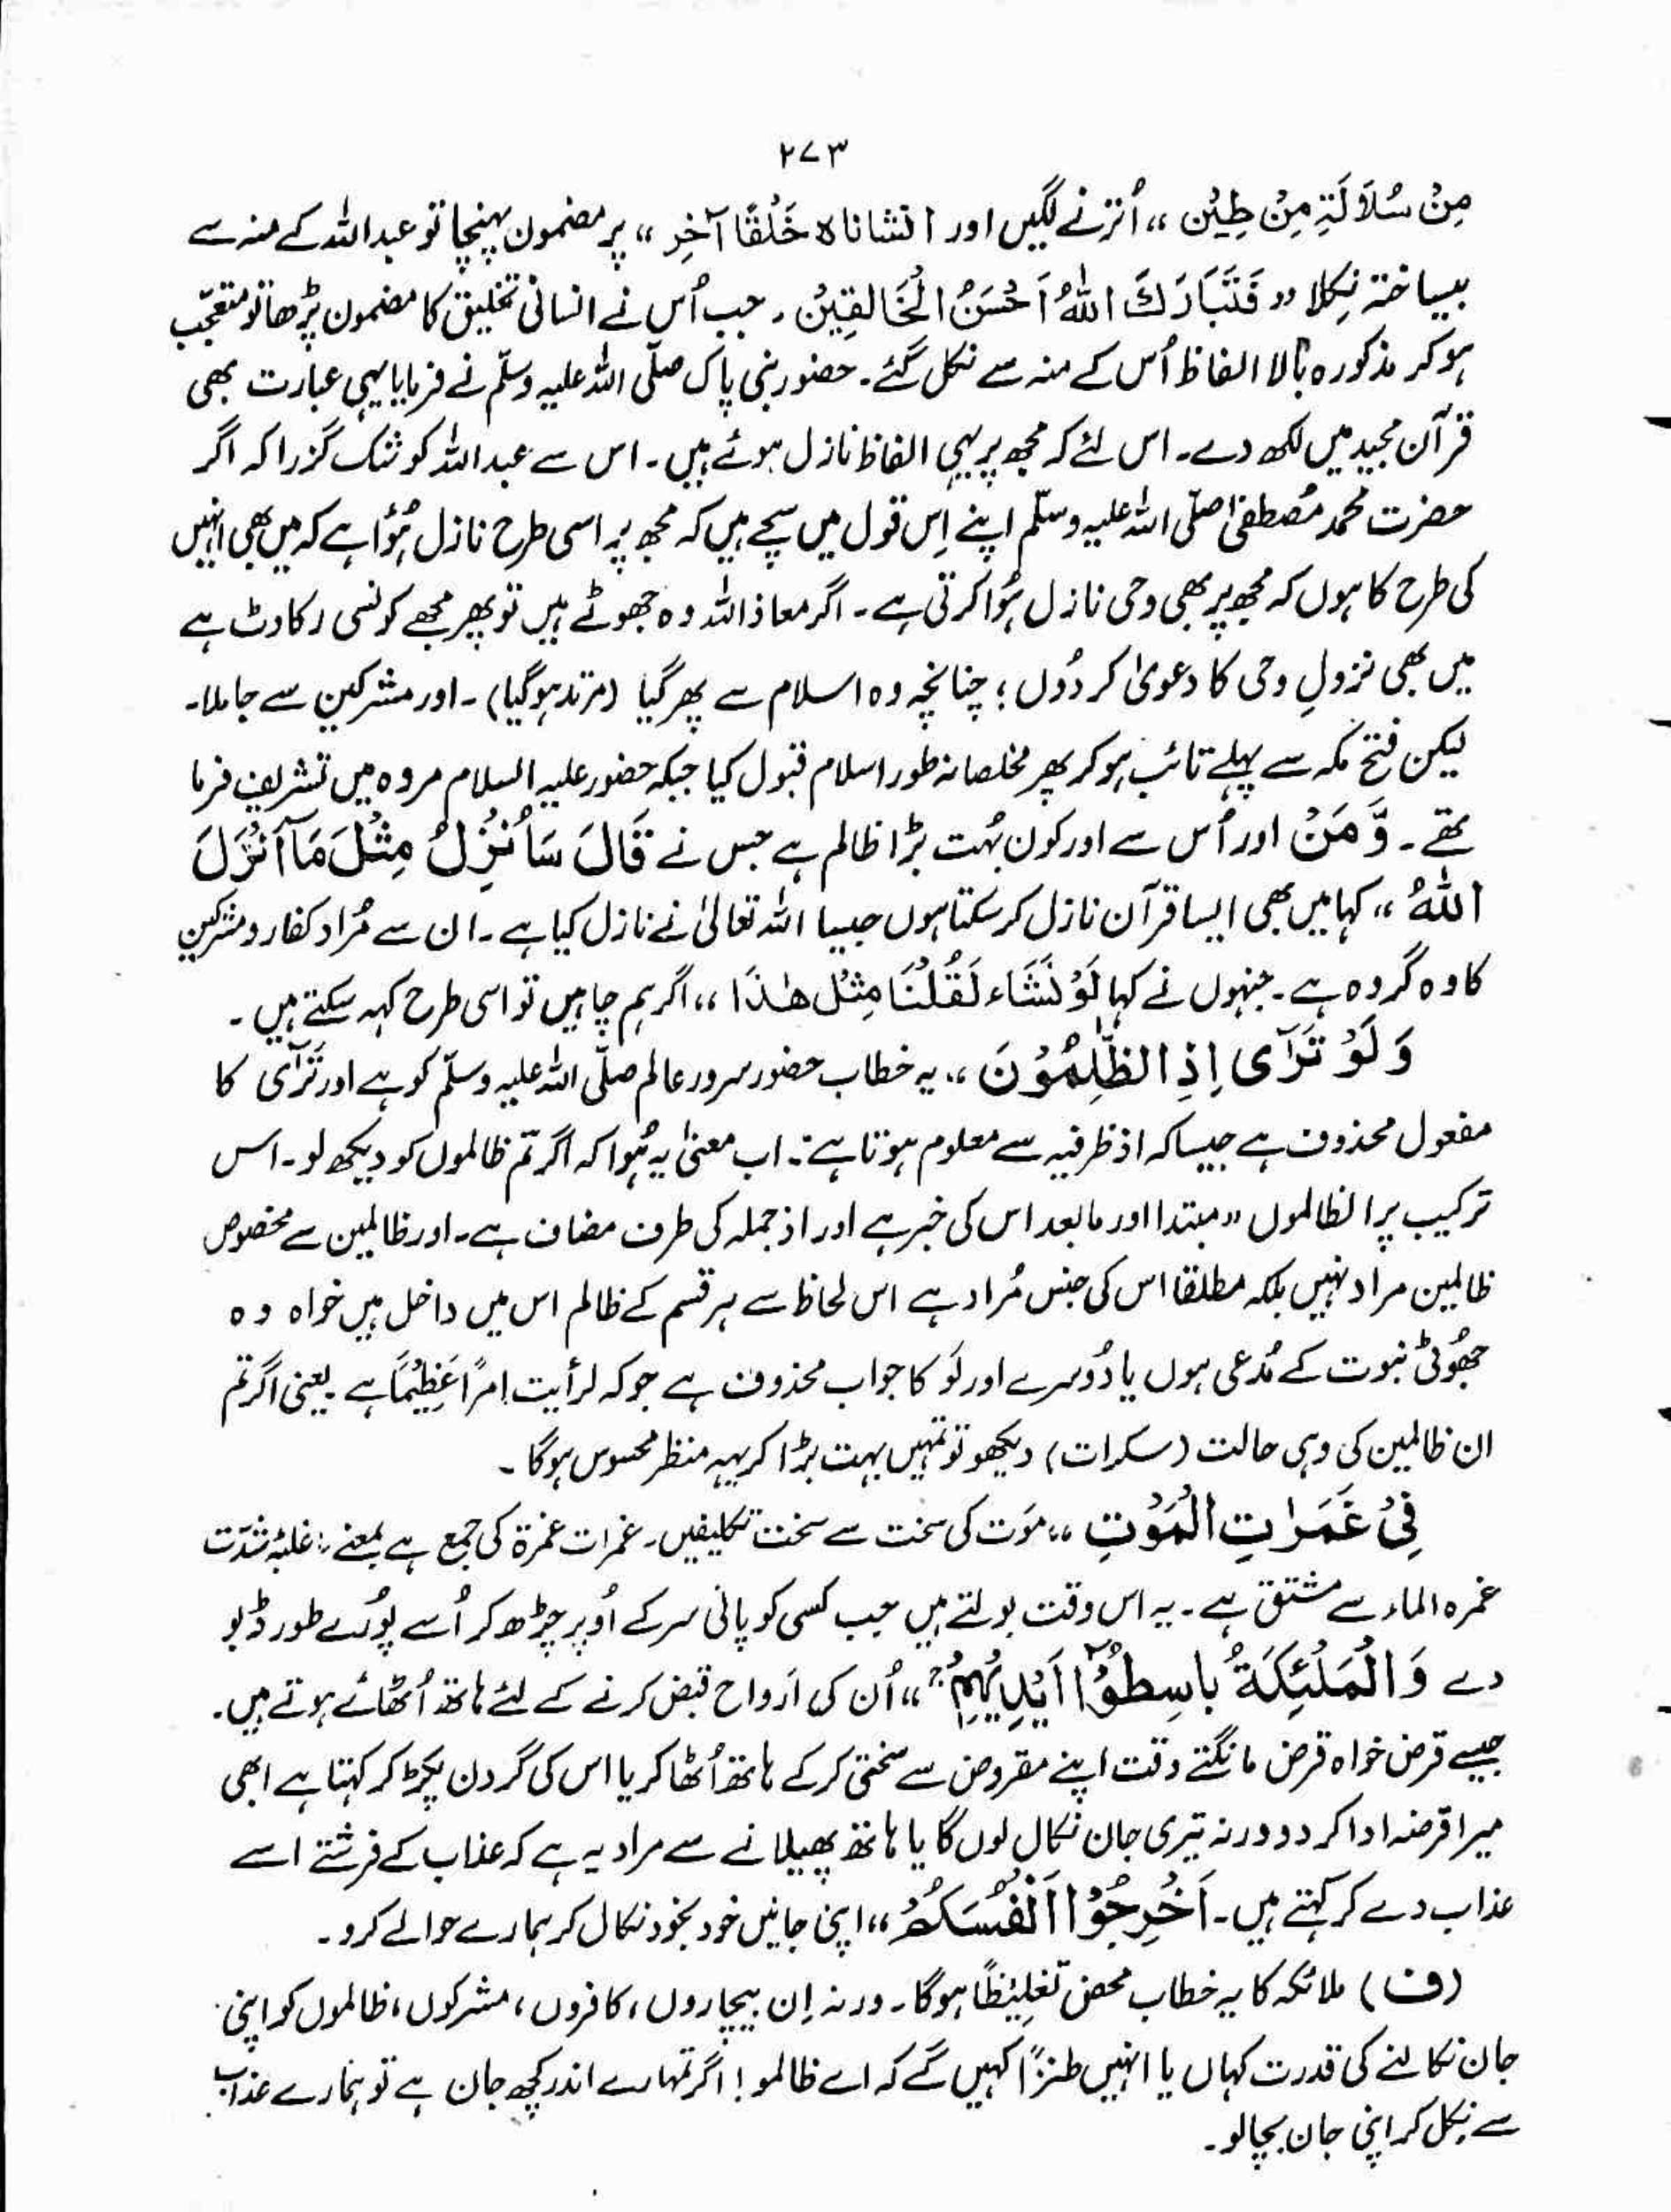 ۲۷۳
مِنْ سُلَالَةٍ مِنْ طِیْن ،، اُترنے لگیں اور انشاناہ خَلْقًا آخِر ،، پر مضمون پہنچا تو عبداللہ کے منہ سے
بیساختہ نِکلا ،، فَتَبَارَكَ اللّٰهُ اَحْسَنُ الْخَالِقِیْنُ ۔ جب اُس نے انسانی تخلیق کا مضمون پڑھا تو متعجّب
ہو کر مذکورہ بالا الفاظ اُس کے منہ سے نکل گئے ۔ حضور نبی پاک صلّی اللہ علیہ وسلّم نے فرمایا یہی عبارت بھی
قرآن مجید میں لکھ دے ۔ اس لئے کہ مجھ پر یہی الفاظ نازل ہوئے ہیں ۔ اس سے عبداللہ کو شک گزرا کہ اگر
حضرت محمد مُصطفیٰ صلّی اللہ علیہ وسلّم اپنے اِس قول میں سچے ہیں کہ مجھ پہ اسی طرح نازل ہُؤا ہے کہ میں بھی انہیں
کی طرح کا ہوں کہ مجھ پر بھی وحی نازل ہُؤا کرتی ہے ۔ اگر معاذاللہ وہ جھوٹے ہیں تو پھر مجھے کونسی رکاوٹ ہے
میں بھی نزولِ وحی کا دعویٰ کر دُوں ؛ چنانچہ وہ اسلام سے پھر گیا (مرتد ہوگیا) ۔ اور مشرکین سے جاملا ۔
لیکن فتح مکہ سے پہلے تائب ہو کر پھر مخلصانہ طور اسلام قبول کیا جبکہ حضور علیہ السلام مروہ میں تشریف فرما
تھے ۔ وَّمَنْ اور اُس سے اور کون بُہت بڑا ظالم ہے جس نے قَالَ سَاُنْزِلُ مِثْلَ مَآ اَنْزَلَ
اللّٰهُ ،، کہا میں بھی ایسا قرآن نازل کر سکتا ہوں جیسا اللہ تعالیٰ نے نازل کیا ہے ۔ ان سے مُراد کفار و مشرکین
کا وہ گروہ ہے ۔ جنہوں نے کہا لَوْ نَشَاء لَقُلْنَا مِثْلَ هٰذَا ،، اگر ہم چاہیں تو اسی طرح کہہ سکتے ہیں ۔
وَلَوْ تَرَآی اِذِ الظّٰلِمُوْنَ ،، یہ خطاب حضور سرور عالم صلّی اللہ علیہ وسلّم کو ہے اور تَرٰآی کا
مفعول محذوف ہے جیسا کہ اذ ظرفیہ سے معلوم ہوتا ہے ۔ اب معنیٰ یہ ہُوا کہ اگر تم ظالموں کو دیکھ لو ۔ اس
ترکیب پر الظالموں ،، مبتدا اور مابعد اس کی خبر ہے اور اذ جملہ کی طرف مضاف ہے ۔ اور ظالمین سے مخصوص
ظالمین مراد نہیں بلکہ مطلقا اس کی جنس مُراد ہے اس لحاظ سے ہر قسم کے ظالم اس میں داخل ہیں خواہ وہ
جھُوٹی نبوت کے مُدعی ہوں یا دُوسرے اور لَو کا جواب محذوف ہے جو کہ لرأیت امرًا عَظِیْمًا ہے ۔ یعنی اگر تم
ان ظالمین کی وہی حالت (سکرات) دیکھو تو تمہیں بہت بڑا کریہہ منظر محسوس ہوگا ۔
فِیْ غَمَرَاتِ الْمَوْتِ ،، مَوت کی سخت سے سخت تکلیفیں ۔ غمرات غمرۃ کی جمع ہے بمعنے : غلبۂ شدّت
غمرہ الماء سے مشتق ہے ۔ یہ اس وقت بولتے ہیں جب کسی کو پانی سر کے اُوپر چڑھ کر اُسے پوُرے طور ڈبو
دے وَالْمَلٰٓئِكَةُ بَاسِطُوْۤا اَیْدِیْهِمْ ج ،، اُن کی اَرواح قبض کرنے کے لئے ہاتھ اُٹھائے ہوتے ہیں ۔
جیسے قرض خواہ قرض مانگتے وقت اپنے مقروض سے سختی کر کے ہاتھ اُٹھا کر یا اس کی گردن پکڑ کر کہتا ہے ابھی
میرا قرضہ ادا کر دو ورنہ تیری جان نکال لوں گا یا ہاتھ پھیلانے سے مراد یہ ہے کہ عذاب کے فرشتے اسے
عذاب دے کر کہتے ہیں ۔ اَخْرِجُوْا اَنْفُسَكُمْ ،، اپنی جانیں خود بخود نکال کر ہمارے حوالے کرو ۔
(ف) ملائکہ کا یہ خطاب محض تَغلِیْظًا ہوگا ۔ ورنہ اِن بیچاروں ، کافروں ، مشرکوں ، ظالموں کو اپنی
جان نکالنے کی قدرت کہاں یا انہیں طنزًا کہیں گے کہ اے ظالمو ! اگر تمہارے اندر کچھ جان ہے تو ہمارے عذاب
سے نِکل کر اپنی جان بچالو ۔